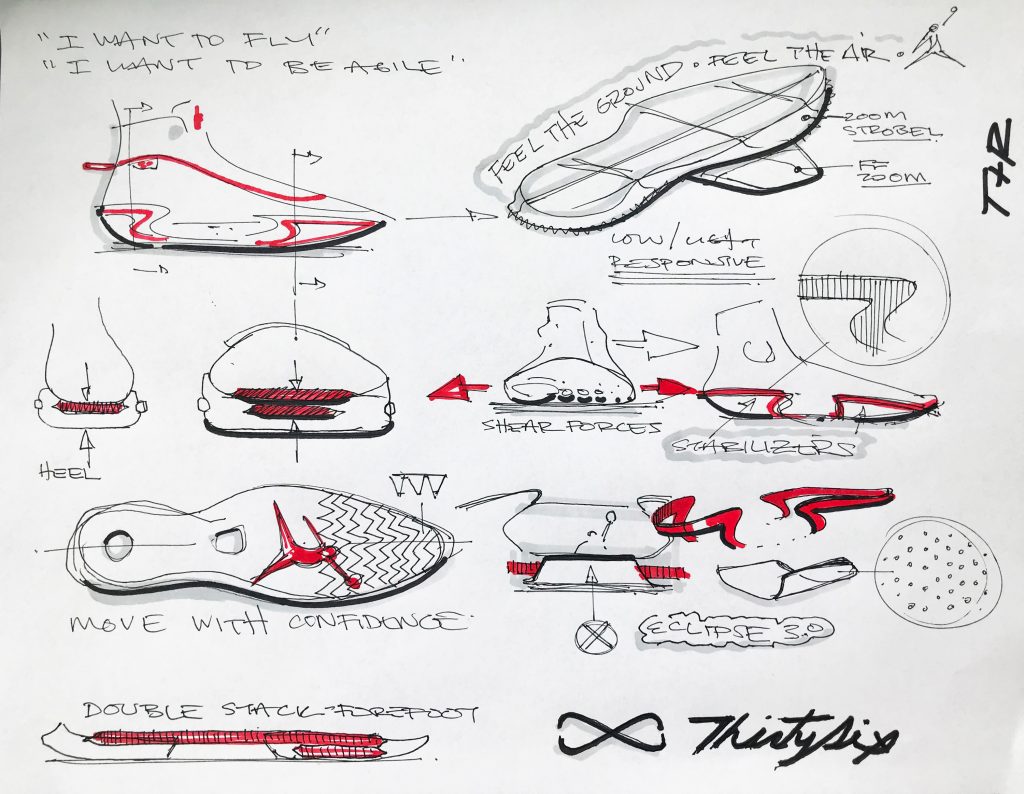 "I WANT TO FLY"
"I WANT TO BE AGILE"
FEEL THE GROUND · FEEL THE AIR ·
ZOOM
STROBEL
FF
ZOOM
LOW/LIGHT
RESPONSIVE
HEEL
SHEAR FORCES
STABILIZERS
MOVE WITH CONFIDENCE
ECLIPSE 3.0
DOUBLE STACK FOREFOOT
ThirtySix